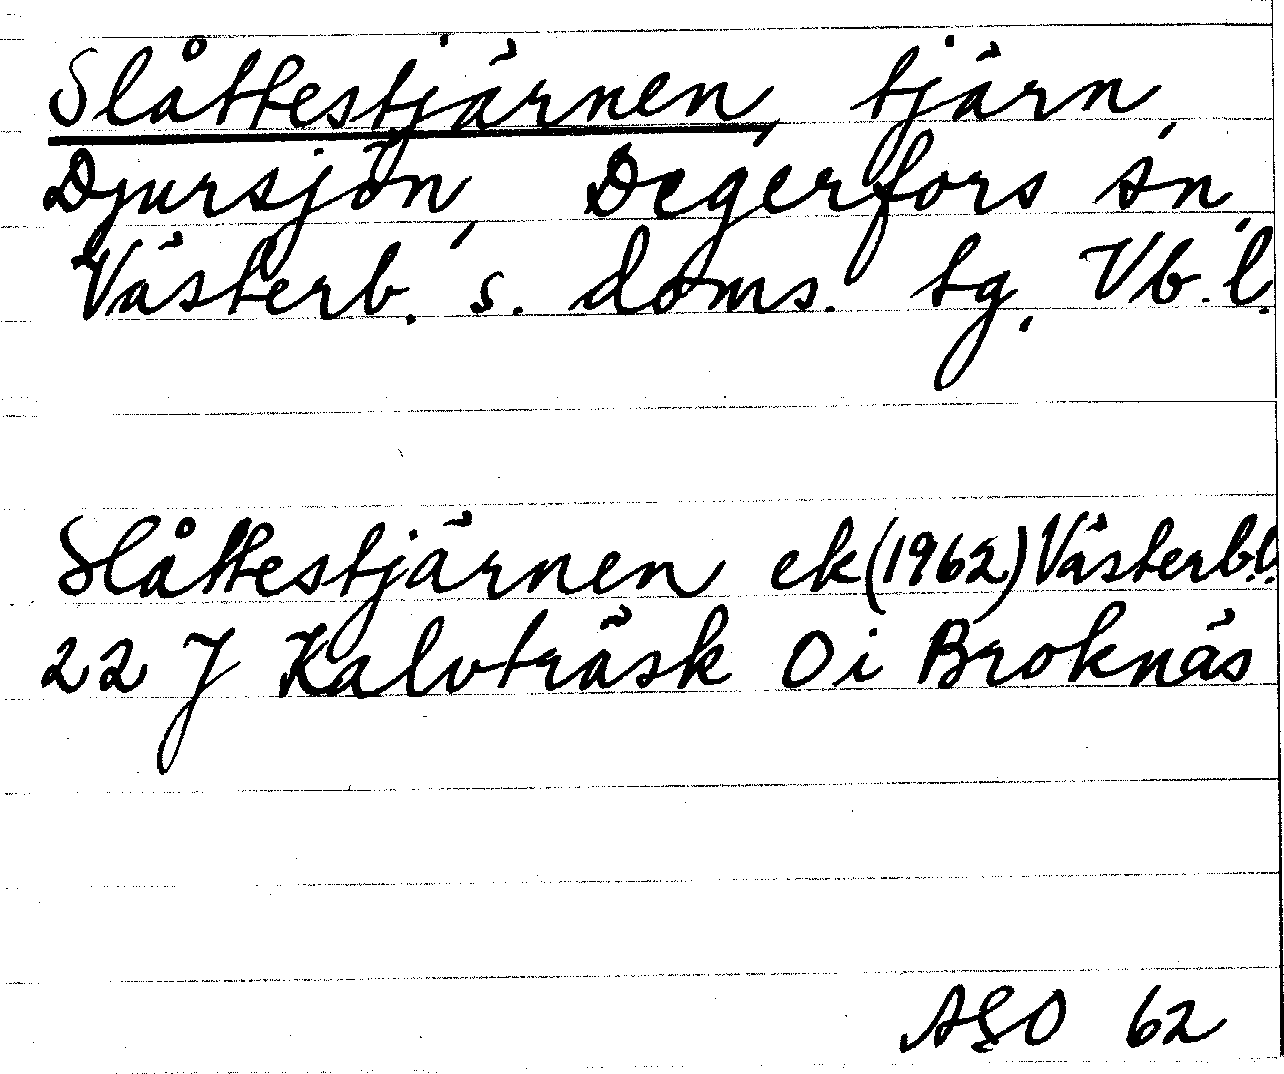 Slåttestjärnen, tjärn,
Djursjön, Degerfors sn,
Västerb. s. doms. tg, Vb.l.
Slåttestjärnen ek (1962) Västerb.l.
22 J Kalvträsk 0 i Broknäs
ASO 62